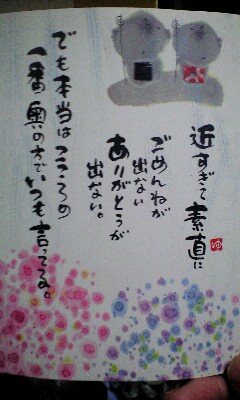 近すぎて素直に
ごめんねが
出ない
ありがとうが
出ない。
でも本当はこころの
一番奥の方でいつも言ってる。
ゆ